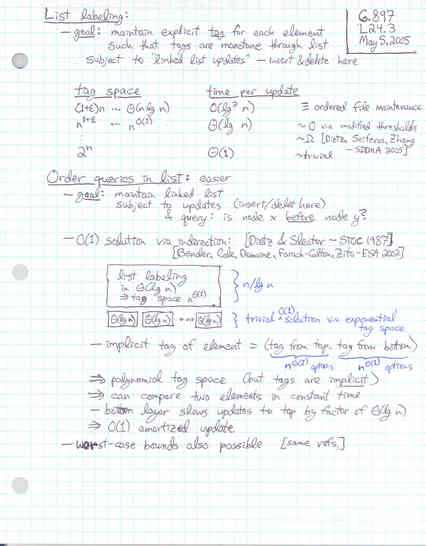 List labeling:
6.897
L24.3
May 5, 2005
- goal: maintain explicit tag for each element
such that tags are monotone through list
subject to "linked list updates" — insert & delete here
tag space    time per update
(1+ε)n ... Θ(n lg n)    O(lg² n)    ≡ ordered file maintenance
n^{1+ε} ... n^{O(1)}    Θ(lg n)    ~ O via modified thresholds
~ Ω [Dietz, Seiferas, Zhang
- SIDMA 2005]
2^n    Θ(1)    ~ trivial
Order queries in list: easier
- goal: maintain linked list
subject to updates (insert/delete here)
& query: is node x before node y?
- O(1) solution via indirection: [Dietz & Sleator ~ STOC 1987]
[Bender, Cole, Demaine, Farach-Colton, Zito - ESA 2002]
list labeling
in Θ(lg n)
⇒ tag space n^{O(1)}
} n/lg n
Θ(lg n) Θ(lg n) ... Θ(lg n) } trivial O(1) solution via exponential
tag space
- implicit tag of element = (tag from top, tag from bottom)
n^{O(1)} options    n^{O(1)} options
⇒ polynomial tag space (but tags are implicit)
⇒ can compare two elements in constant time
- bottom layer slows updates to top by factor of Θ(lg n)
⇒ O(1) amortized update
- worst-case bounds also possible [same refs.]